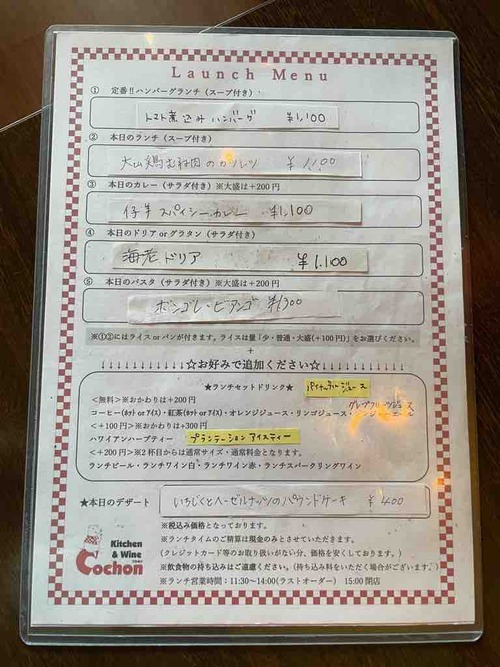 Launch Menu
① 定番!!ハンバーグランチ（スープ付き）
トマト煮込みハンバーグ ¥1,100
② 本日のランチ（スープ付き）
大山鶏むね肉のカツレツ ¥1,100
③ 本日のカレー（サラダ付き）※大盛は+200円
仔羊スパイシーカレー ¥1,100
④ 本日のドリア or グラタン（サラダ付き）
海老ドリア ¥1,100
⑤ 本日のパスタ（サラダ付き）※大盛は+200円
ボンゴレ・ビアンゴ ¥1,300
※①②にはライス or パンが付きます。ライスは量「少・普通・大盛(+100円)」をお選びください。
+
↓↓↓↓↓↓↓↓↓↓☆お好みで追加ください☆↓↓↓↓↓↓↓↓↓↓
★ランチセットドリンク★ パイナップルジュース
<無料>※おかわりは+200円 グレープフルーツジュース
コーヒー(ホット or アイス)・紅茶(ホット or アイス)・オレンジジュース・リンゴジュース・
<+100円>※おかわりは+300円
ハワイアンハーブティー プランテーションアイスティー
<+200円>※2杯目からは通常サイズ・通常料金となります。
ランチビール・ランチワイン白・ランチワイン赤・ランチスパークリングワイン
★本日のデザート いちじくとヘーゼルナッツのパウンドケーキ ¥400
※税込み価格となっております。
※ランチタイムのご精算は現金のみとさせていただきます。
(クレジットカード等のお取り扱いがない分、価格を安くしております。)
※飲食物の持ち込みはご遠慮ください。(持ち込み料をいただく場合がございます。)
※ランチ営業時間：11:30～14:00(ラストオーダー) 15:00 閉店
Kitchen
& Wine
Cochon